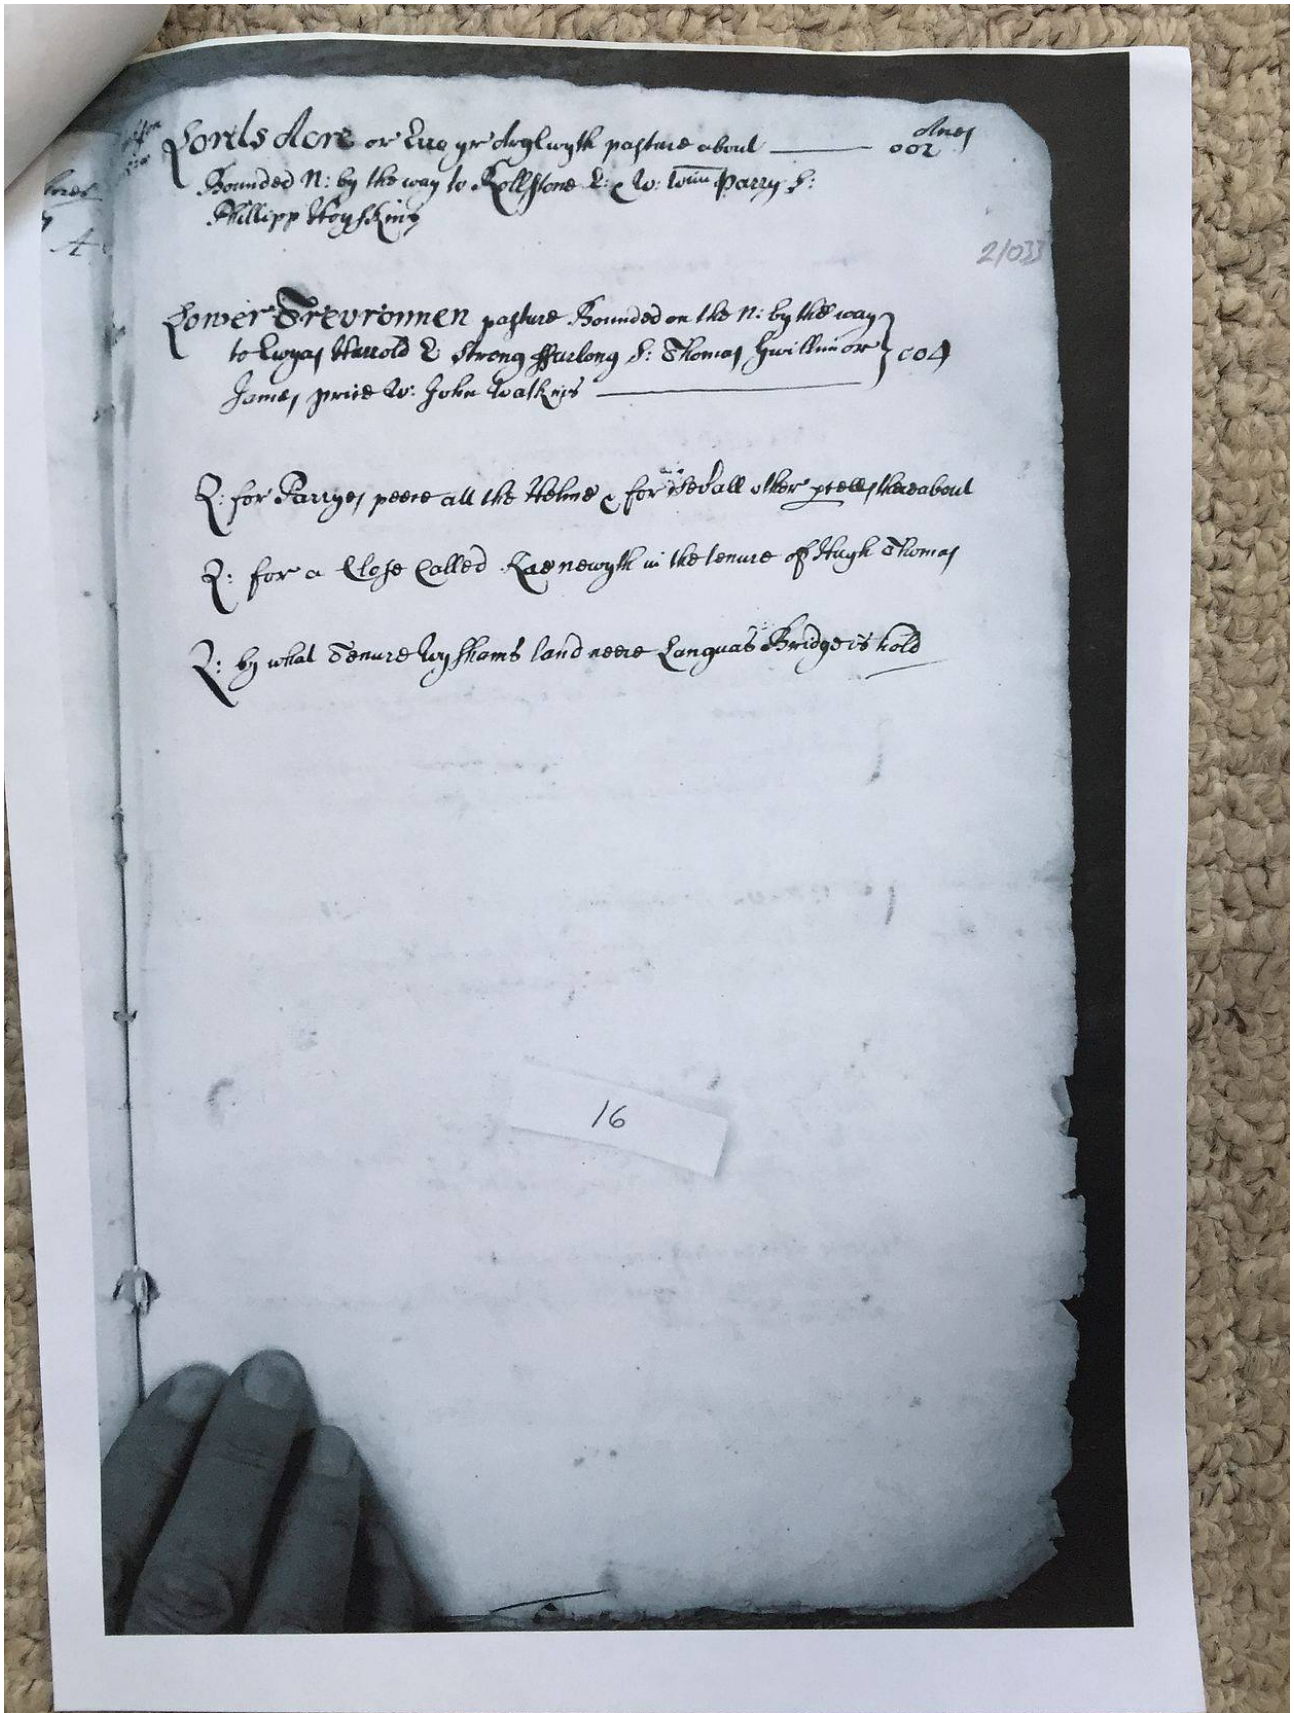 Acres
Lords Acre or Erw yr Arglwyth pasture about 002
Bounded N: by the way to Rollstone E: & W: Willm Parry S:
Phillipp Hoyskins
21033
Lower Trevronnen pasture Bounded on the N: by the way
to Ewyas Harrold E Strong ffurlong S: Thomas Gwillim or } 004
James price W: John Watkins
Q: for Parryes peece all the Helme & for all other thereabout
Q: for a Close Called Kae newyth in the tenure of Hugh Thomas
Q: by what Tenure Wyshams land neere Languas Bridge is hold
16